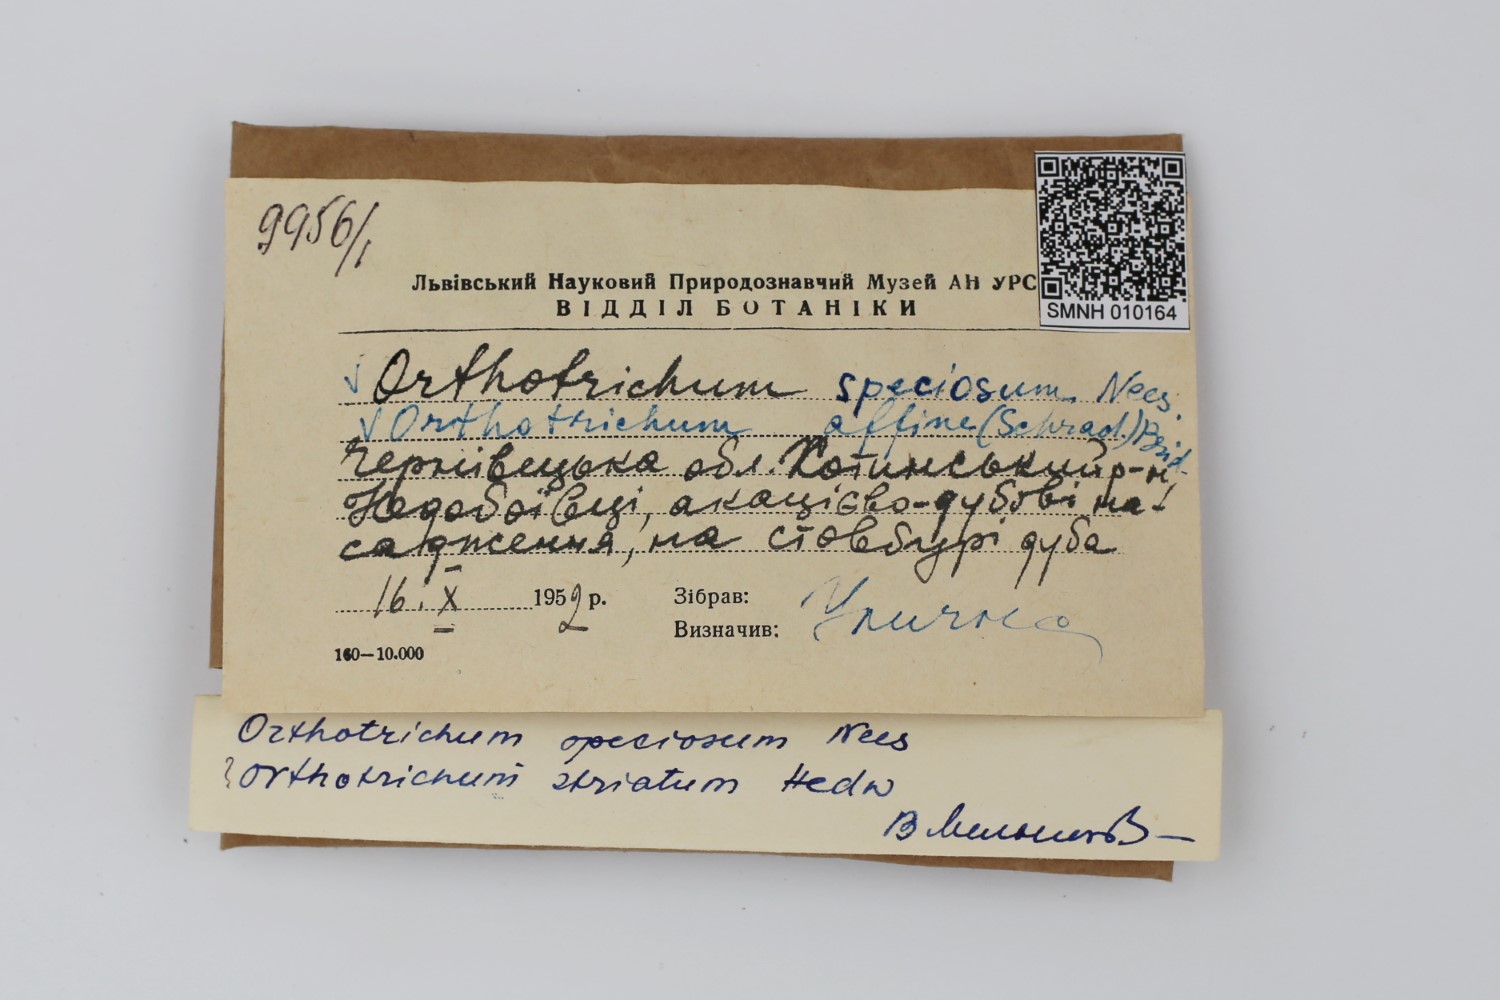 9956/1
Львівський Науковий Природознавчий Музей АН УРС
ВІДДІЛ БОТАНІКИ
SMNH 010164
√ Orthotrichum speciosum Nees.
√ Orthotrichum affine (Schrad.) Brid.
Чернівецька обл. Хотинський р-н,
Недобоївці, акацієво-дубові на-
садження, на стовбурі дуба
16. X 1952 р.
Зібрав:
Визначив: Уличка
160—10.000
Orthotrichum speciosum Nees
? Orthotrichum striatum Hedw
В